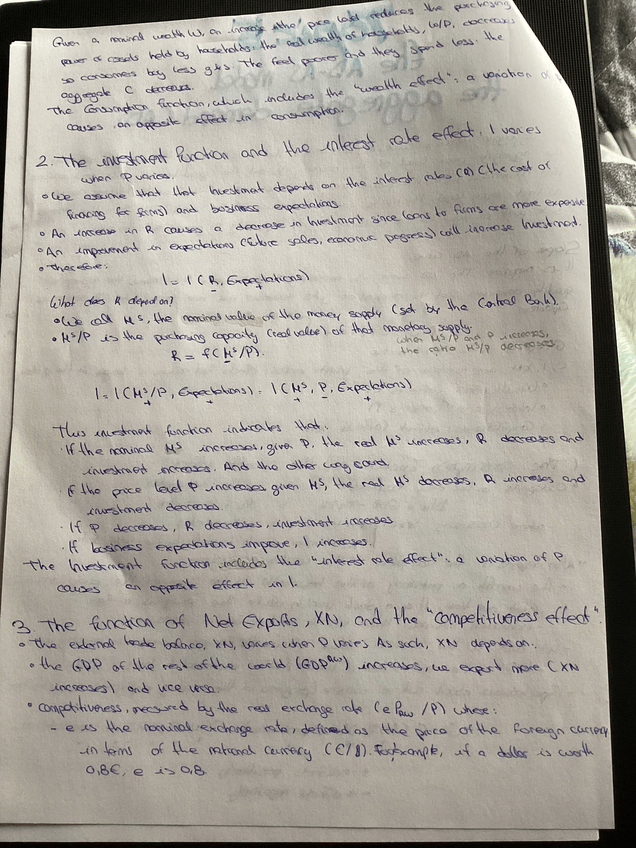 Given a nominal wealth W, an increase in the price level reduces the purchasing
power of assets held by households: the real wealth of households, W/P, decreases
so consumers buy less g&s. They feel poorer and they spend less. The
aggregate C decreases.
The consumption function, which includes the "wealth effect": a variation of
causes an opposite effect in consumption.
2. The investment function and the interest rate effect. I varies
when P varies.
• We assume that that Investment depends on the interest rates (R) (the cost of
financing for firms) and business expectations.
• An increase in R causes a decrease in Investment since loans to firms are more expensive
• An improvement in expectations (future sales, economic progress) will increase Investment.
• Therefore:
I = I (R, Expectations)
- +
What does R depend on?
• We call Mˢ, the nominal value of the money supply (set by the Central Bank).
• Mˢ/P is the purchasing capacity (real value) of that monetary supply.
R = f(Mˢ/P).
-
when Mˢ/P and P increases,
the ratio Mˢ/P decreases.
I = I (Mˢ/P, Expectations) = I (Mˢ, P, Expectations)
+ + + - +
This investment function indicates that:
· If the nominal Mˢ increases, given P, the real Mˢ increases, R decreases and
investment increases. And the other way round.
· If the price level P increases given Mˢ, the real Mˢ decreases, R increases and
investment decreases.
· If P decreases, R decreases, investment increases
· If business expectations improve, I increases.
The Investment function includes the "interest rate effect": a variation of P
causes an opposite effect in I.
3. The function of Net Exports, XN, and the "competitiveness effect".
• The external trade balance, XN, varies when P varies. As such, XN depends on:
• the GDP of the rest of the world (GDPᴿᵂ) increases, we export more (XN
increases) and vice versa
• competitiveness, measured by the real exchange rate (e Pʀᴡ /P) where:
- e is the nominal exchange rate, defined as the price of the foreign currency
in terms of the national currency (€/$). For example, if a dollar is worth
0,8€, e is 0,8.